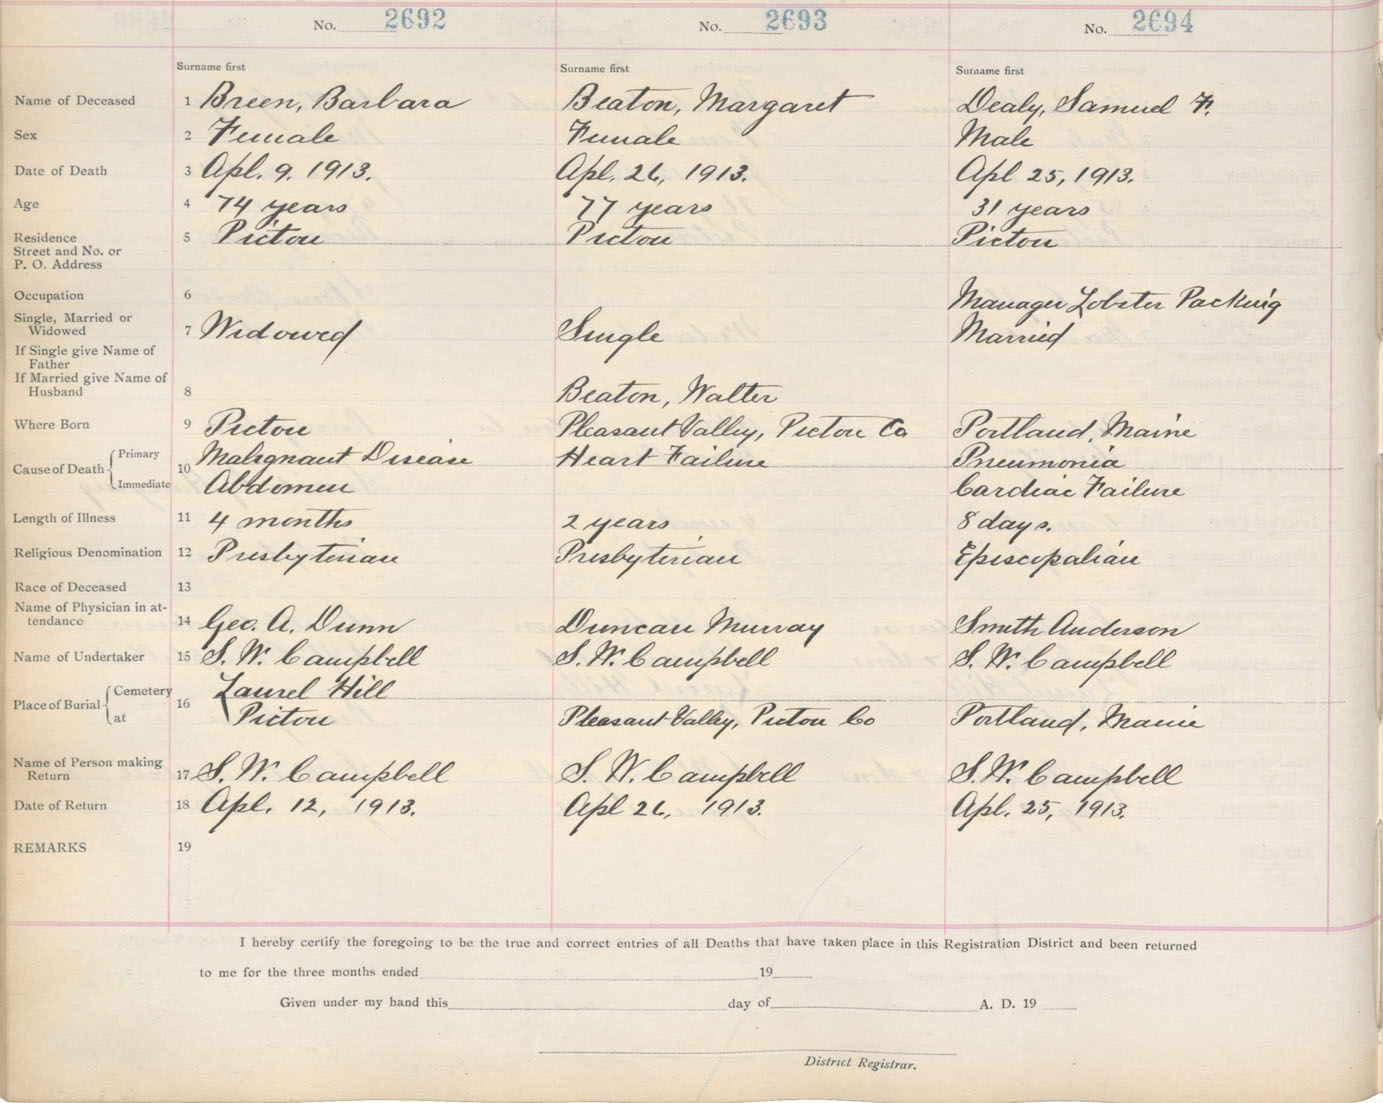 No. 2692 No. 2693 No. 2694
Surname first Surname first Surname first
Name of Deceased 1 Breen, Barbara Beaton, Margaret Dealy, Samuel F.
Sex 2 Female Female Male
Date of Death 3 Apl. 9. 1913. Apl. 26, 1913. Apl 25, 1913.
Age 4 74 years 77 years 31 years
Residence 5 Pictou Pictou Pictou
Street and No. or
P. O. Address
Occupation 6 Manager Lobster Packing
Single, Married or
Widowed 7 Widowed Single Married
If Single give Name of
Father
If Married give Name of
Husband 8 Beaton, Walter
Where Born 9 Pictou Pleasant Valley, Pictou Co Portland, Maine
Cause of Death Primary 10 Malignant Disease Heart Failure Pneumonia
Immediate Abdomen Cardiac Failure
Length of Illness 11 4 months 2 years 8 days.
Religious Denomination 12 Presbyterian Presbyterian Episcopalian
Race of Deceased 13
Name of Physician in at-
tendance 14 Geo. A. Dunn Duncan Murray Smith Anderson
Name of Undertaker 15 S. W. Campbell S. W. Campbell S. W. Campbell
Place of Burial Cemetery 16 Laurel Hill
at Pictou Pleasant Valley, Pictou Co Portland, Maine
Name of Person making
Return 17 S. W. Campbell S. W. Campbell S. W. Campbell
Date of Return 18 Apl. 12, 1913. Apl 26, 1913. Apl. 25, 1913.
REMARKS 19
I hereby certify the foregoing to be the true and correct entries of all Deaths that have taken place in this Registration District and been returned
to me for the three months ended 19
Given under my hand this day of A. D. 19
District Registrar.